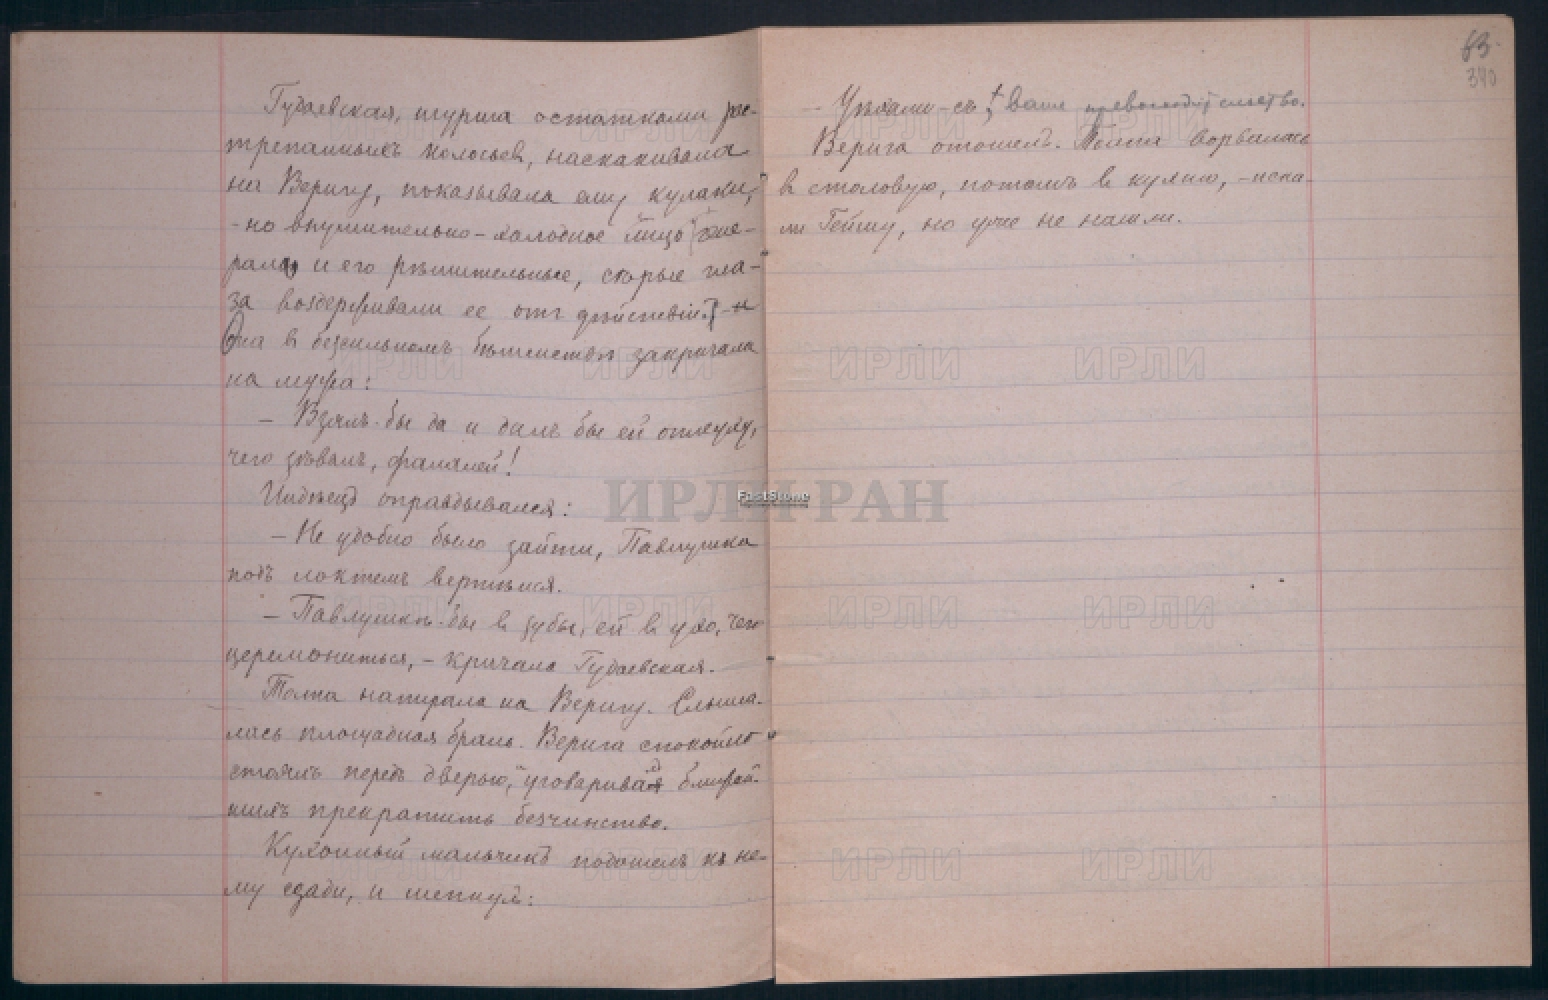 Гудаевская, шурша остатками рас-
трепанныхъ колосьев, наскакивала
на Веригу, показывала ему кулаки,
- но внушительно-холодное лицо гене-
рала, и его рѣшительные, скорые гла-
за воздерживали ее отъ дѣйствій. - и
Она в безсильномъ бѣшенствѣ закричала
на мужа:
- Взялъ-бы да и далъ бы ей оплеуху,
чего зѣвалъ, фалалей!
Индѣецъ оправдывался:
- Не удобно было зайти, Павлушка
подъ локтемъ вертѣлся.
- Павлушкѣ-бы в зубы, ей в ухо, чего
церемониться, - кричала Гудаевская.
Толпа напирала на Веригу. Слыша-
лась площадная брань. Верига спокойно
стоялъ передъ дверью, уговаривая ближай-
шихъ прекратить безчинство.
Кухонный мальчикъ подошелъ къ не-
му сзади, и шепнулъ:
63.
340
- Уѣхали-съ, ваше превосходительство.
Верига отошелъ. Толпа ворвалась
в столовую, потомъ в кухню, - иска-
ли Гейшу, но уже не нашли.
ИРЛИ РАН
FastStone
ИРЛИ ИРЛИ ИРЛИ ИРЛИ
ИРЛИ ИРЛИ ИРЛИ ИРЛИ
ИРЛИ ИРЛИ ИРЛИ ИРЛИ
ИРЛИ ИРЛИ ИРЛИ ИРЛИ